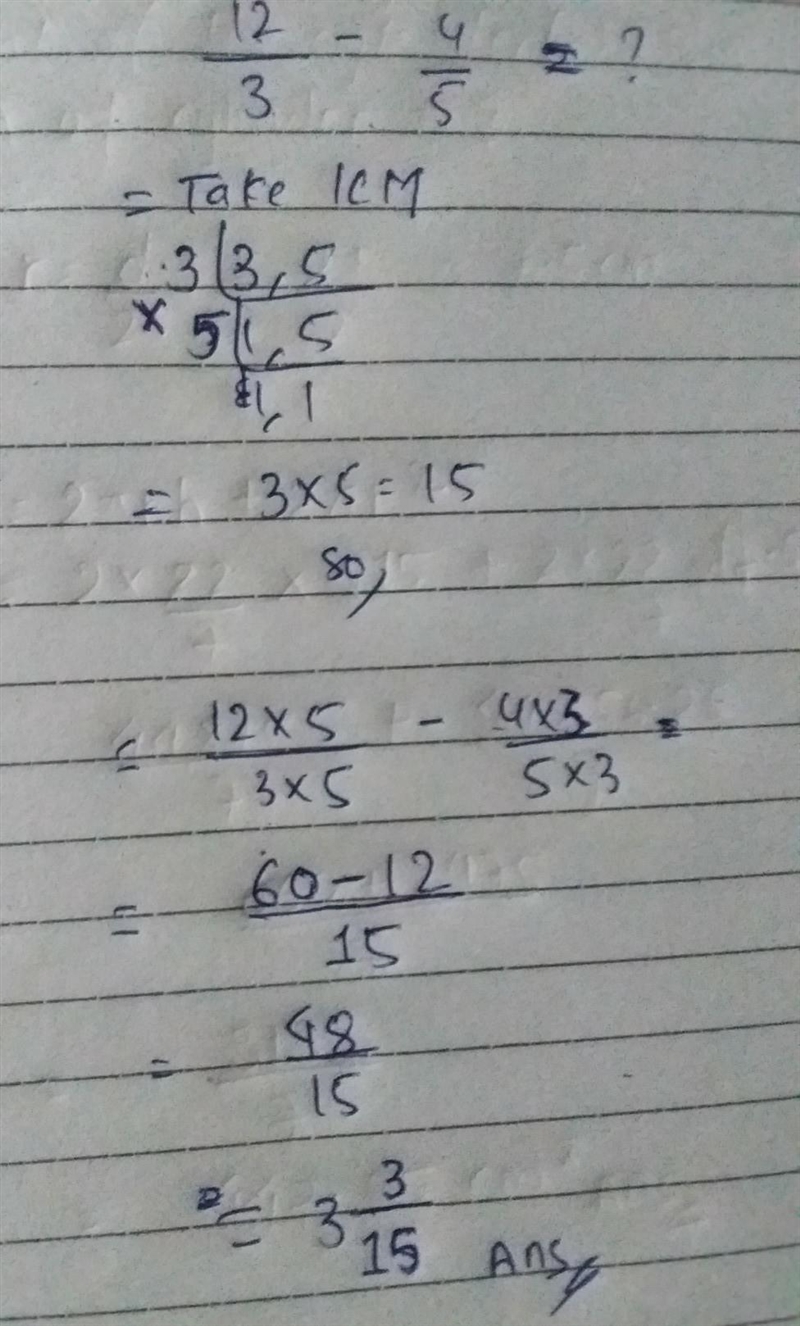 12/3 - 4/5 = ?
= Take LCM
3 | 3, 5
× 5 | 1, 5
1, 1
= 3×5 = 15
so,
= 12×5/3×5 - 4×3/5×3 =
= 60-12/15
= 48/15
= 3 3/15 Ans